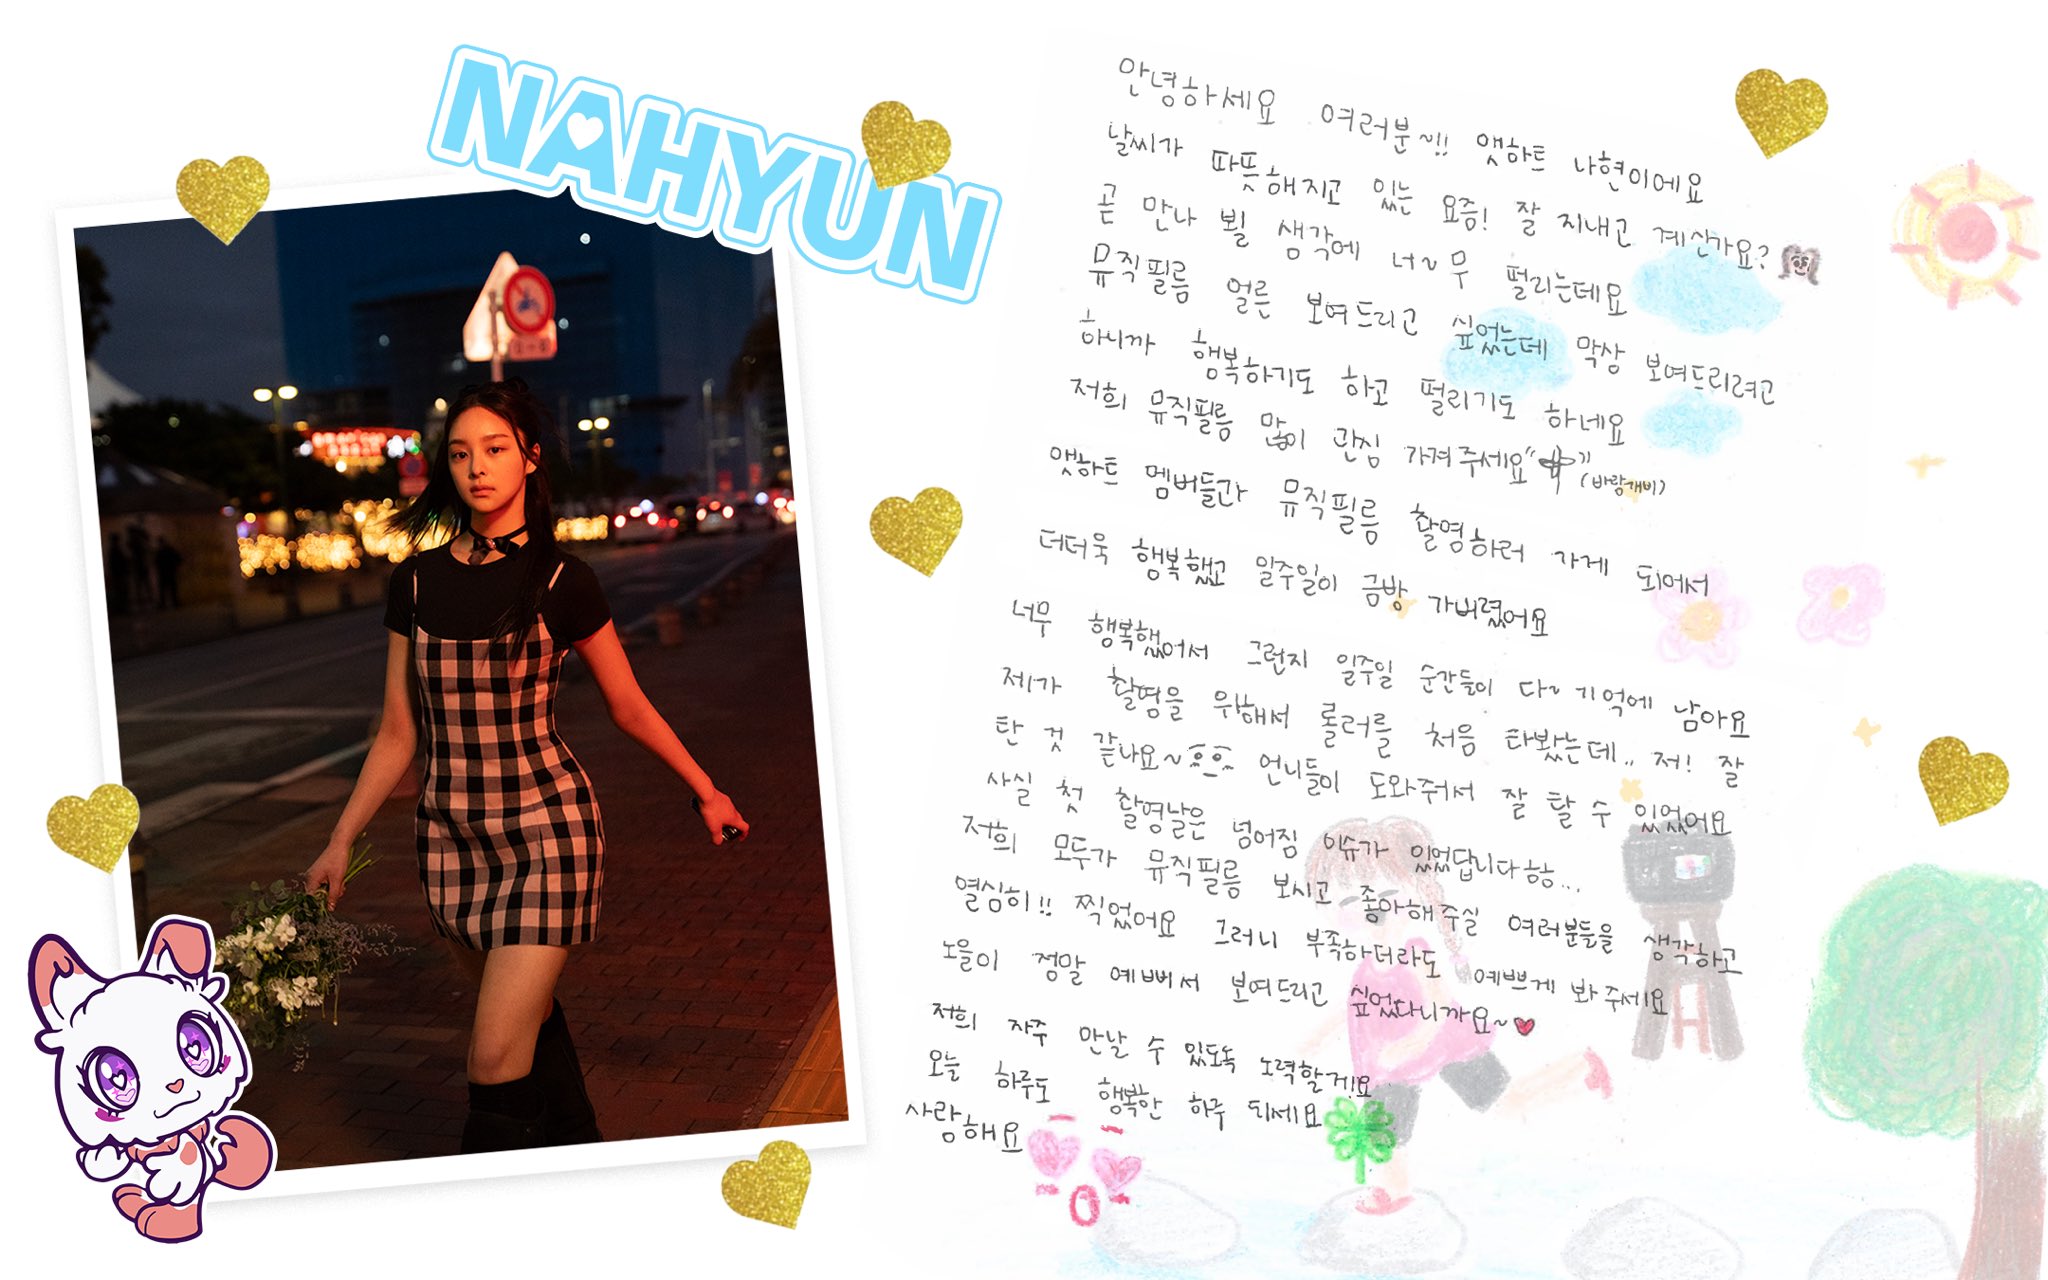 NAHYUN
안녕하세요 여러분~!! 앳하트 나현이에요
날씨가 따뜻해지고 있는 요즘! 잘 지내고 계신가요?
곧 만나 뵐 생각에 너~무 떨리는데요
뮤직필름 얼른 보여드리고 싶었는데 막상 보여드리려고
하니까 행복하기도 하고 떨리기도 하네요
저희 뮤직필름 많이 관심 가져주세요 (바람개비)
앳하트 멤버들과 뮤직필름 촬영하러 가게 되어서
더더욱 행복했고 일주일이 금방 가버렸어요
너무 행복했어서 그런지 일주일 순간들이 다~ 기억에 남아요
제가 촬영을 위해서 롤러를 처음 타봤는데.. 저! 잘
탄 것 같나요~ 언니들이 도와줘서 잘 탈 수 있었어요
사실 첫 촬영날은 넘어짐 이슈가 있었답니다하하...
저희 모두가 뮤직필름 보시고 좋아해주실 여러분들을 생각하고
열심히!! 찍었어요 그러니 부족하더라도 예쁘게 봐주세요
노을이 정말 예뻐서 보여드리고 싶었다니까요~
저희 자주 만날 수 있도록 노력할게요!
오늘 하루도 행복한 하루 되세요
사랑해요